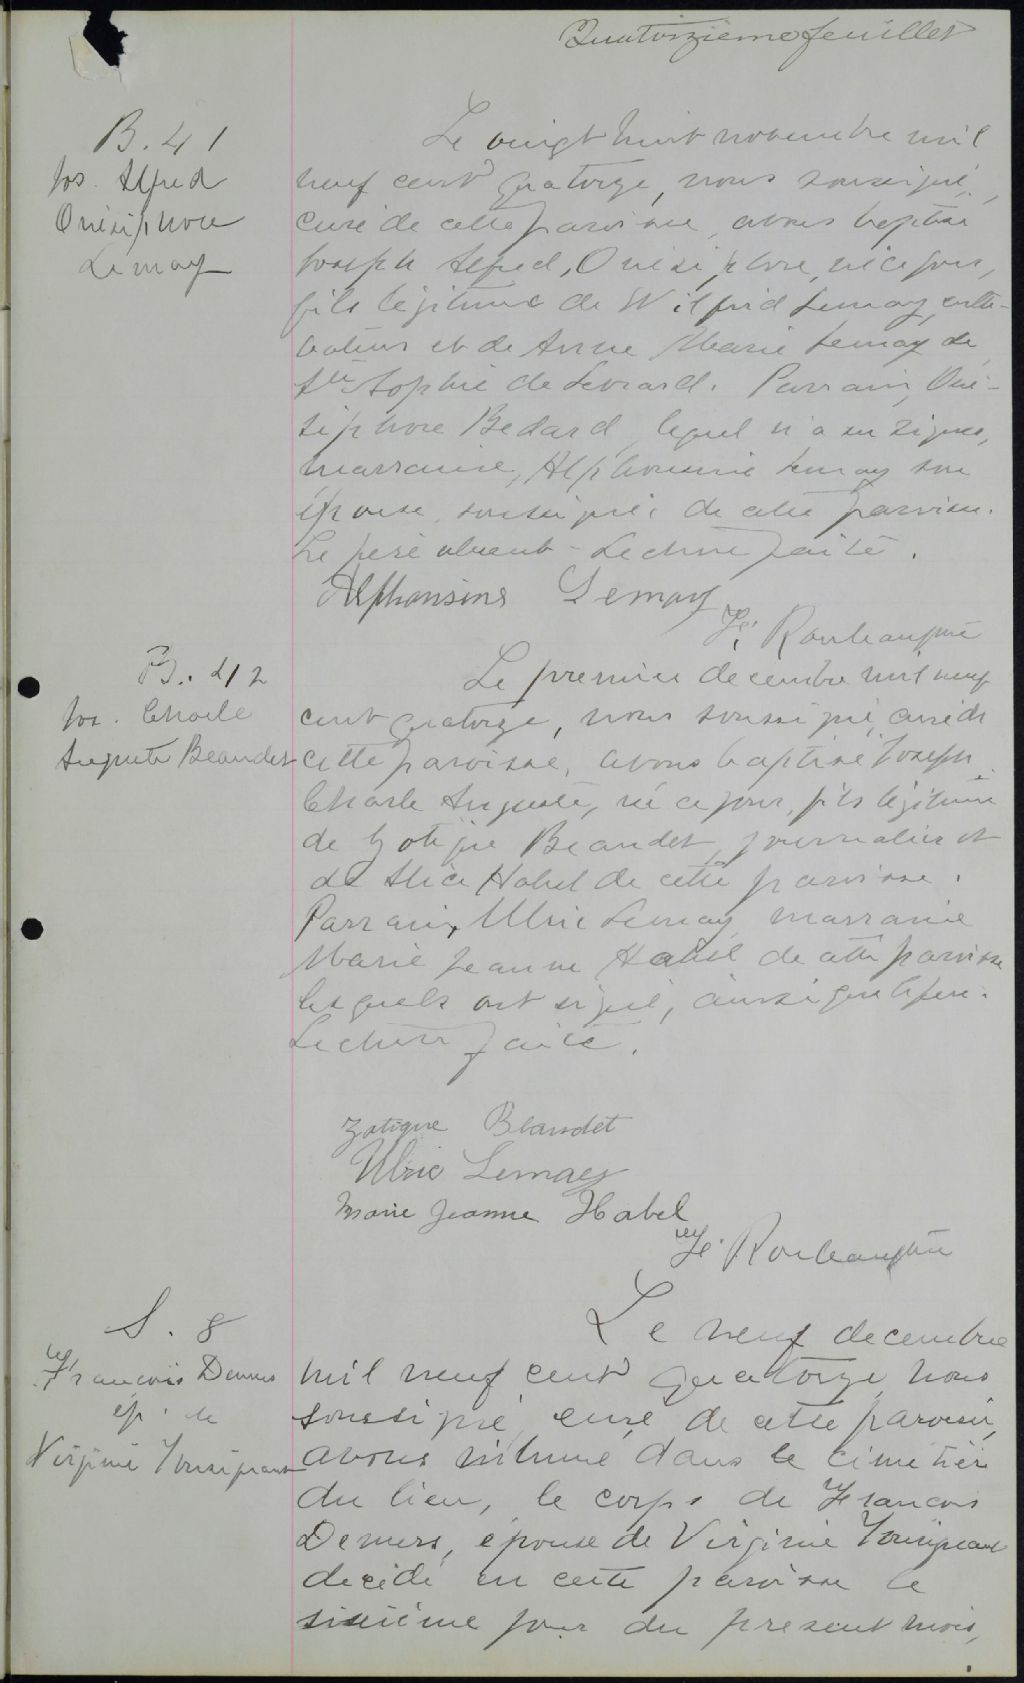 Quatorzieme feuillet
B. 41
Jos. Alfred
Onésiphore
Lemay
Le vingt huit novembre mil
neuf cent quatorze, nous soussigné,
curé de cette paroisse, avons baptisé
Joseph Alfred, Onésiphore, né ce jour,
fils légitime de Wilfrid Lemay, culti-
vateur et de Anna Marie Lemay de
Ste Sophie de Levrard. Parrain, Oné-
siphore Bedard, lequel n'a su signer,
marraine, Alphonsine Lemay son
épouse, soussignée de cette paroisse.
Le père absent - Lecture faite.
Alphonsine Lemay
Rouleau ptre
B. 42
Jos. Charle
Auguste Beaudet
Le premier decembre mil neuf
cent quatorze, nous soussigné, curé de
cette paroisse, avons baptisé Joseph
Charle Auguste, né ce jour, fils légitime
de Zotique Beaudet, journalier et
de Alice Habel de cette paroisse.
Parrain, Ulric Lemay, marraine
Marie Jeanne Habel de cette paroisse
lesquels ont signé, ainsi que le père.
Lecture faite.
Zotique Beaudet
Ulric Lemay
Marie Jeanne Habel
Rouleau ptre
S. 8
François Demers
ép. de
Virginie Tousignant
Le neuf decembre
mil neuf cent quatorze, nous
soussigné, curé de cette paroisse,
avons inhumé dans le cimetière
du lieu, le corps de Francois
Demers, épouse de Virginie Tousignant
decédé en cette paroisse le
sixième jour du present mois,